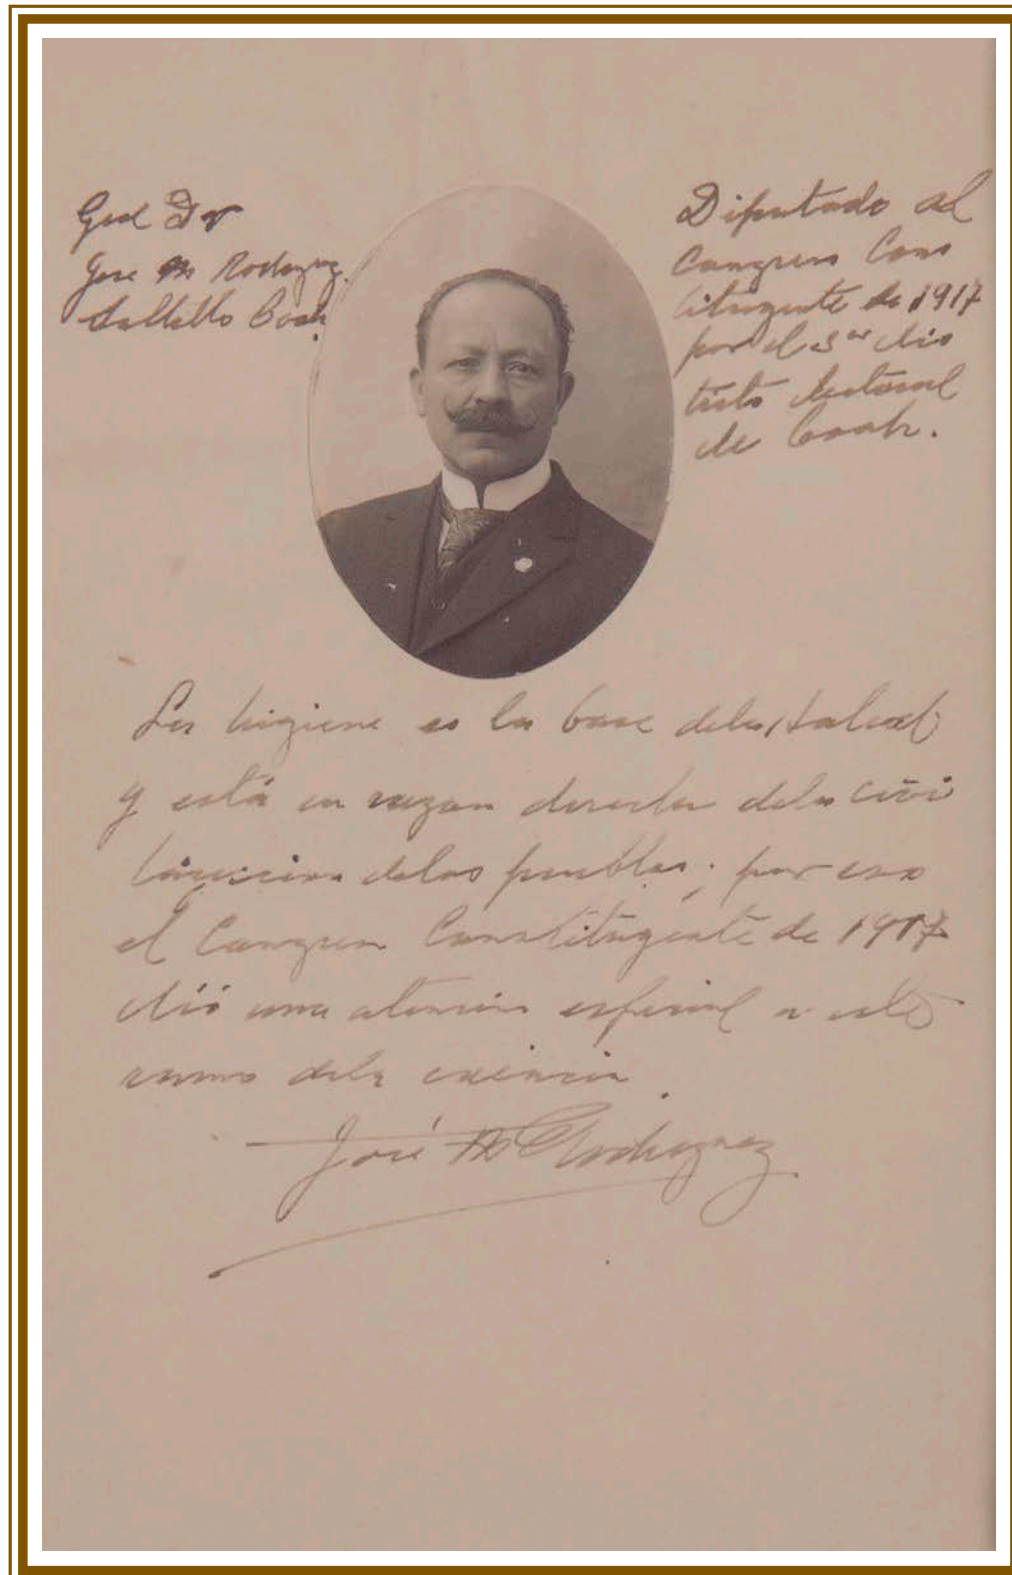 Gral Dr
Jose M Rodrigz.
Saltillo Coah.
Diputado al
Congreso Cons
tituyente de 1917
por el 3er dis
trito electoral
de Coah.
La higiene es la base dela salud
y está en razon directa dela civi
lización delos pueblos; por eso
el Congreso Constituyente de 1917
dió una atencion especial a este
ramo dela ciencia.
José M Rodriguez